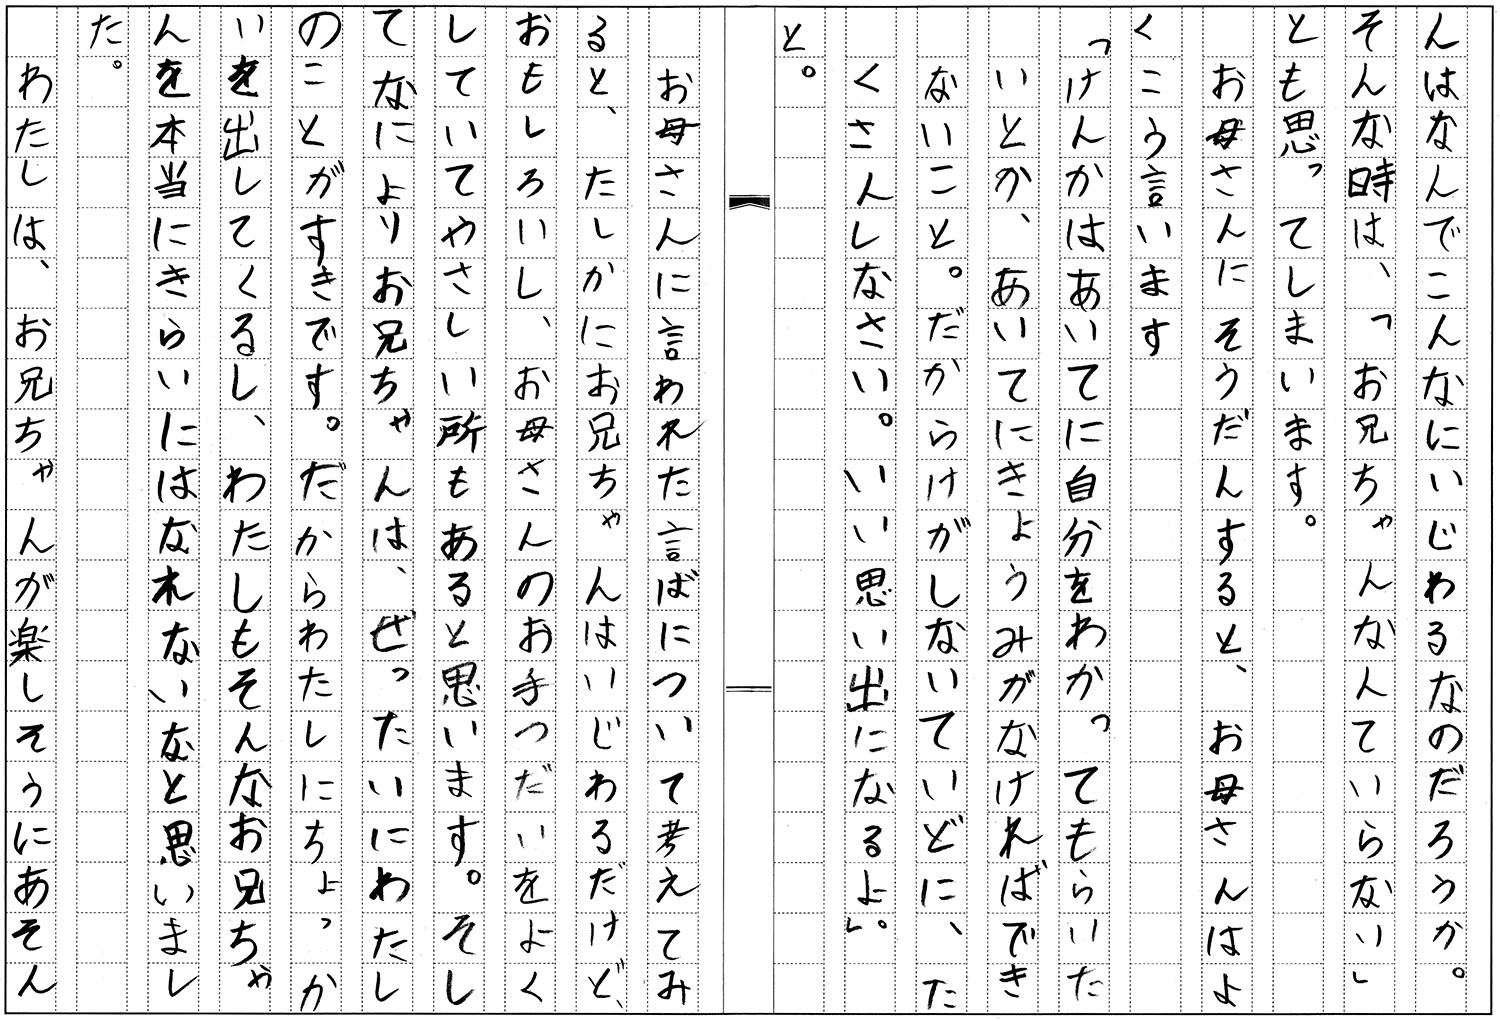 んはなんでこんなにいじわるなのだろうか。
そんな時は、「お兄ちゃんなんていらない」
とも思ってしまいます。
お母さんにそうだんすると、お母さんはよ
くこう言います
「けんかはあいてに自分をわかってもらいた
いとか、あいてにきょうみがなければでき
ないこと。だからけがしないていどに、た
くさんしなさい。いい思い出になるよ。」
と。
お母さんに言われた言ばについて考えてみ
ると、たしかにお兄ちゃんはいじわるだけど、
おもしろいし、お母さんのお手つだいをよく
していてやさしい所もあると思います。そし
てなによりお兄ちゃんは、ぜったいにわたし
のことがすきです。だからわたしにちょっか
いを出してくるし、わたしもそんなお兄ちゃ
んを本当にきらいにはなれないなと思いまし
た。
わたしは、お兄ちゃんが楽しそうにあそん